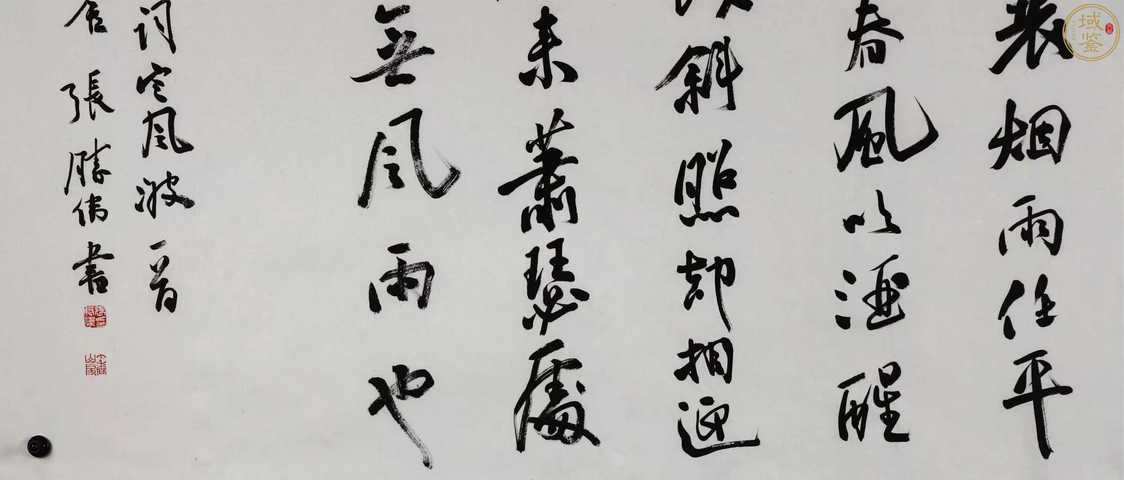 蓑烟雨任平
春風吹酒醒
斜照却相迎
来蕭瑟處
無風雨也
詞定風波一首
張勝偉書
域鉴